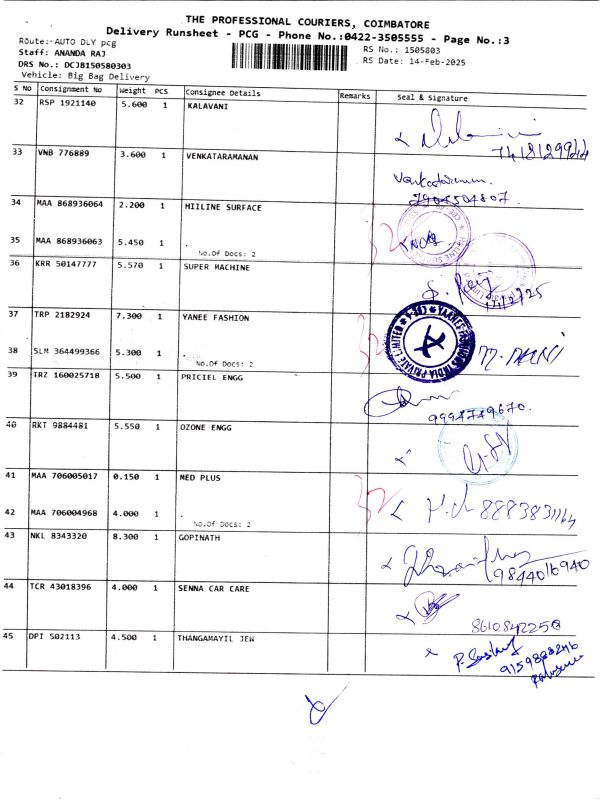 THE PROFESSIONAL COURIERS, COIMBATORE
Delivery Runsheet - PCG - Phone No.:0422-3505555 - Page No.:3
Route:- AUTO DLY pcg
RS No.: 1505803
Staff: ANANDA RAJ
RS Date: 14-Feb-2025
DRS No.: DCJB150580303
Vehicle: Big Bag Delivery
S No Consignment No Weight PCS Consignee Details Remarks Seal & Signature
32 RSP 1921140 5.600 1 KALAVANI
33 VNB 776889 3.600 1 VENKATARAMANAN
Venkataraman.
7904504807.
34 MAA 868936064 2.200 1 HIILINE SURFACE
35 MAA 868936063 5.450 1 .
No.Of Docs: 2
36 KRR 50147777 5.570 1 SUPER MACHINE
37 TRP 2182924 7.300 1 YANEE FASHION
38 SLM 364499366 5.300 1 .
No.Of Docs: 2
39 TRZ 160025718 5.500 1 PRICIEL ENGG
9994749670.
40 RKT 9884481 5.550 1 OZONE ENGG
41 MAA 706005017 0.150 1 MED PLUS
42 MAA 706004968 4.000 1 .
8883831164
No.Of Docs: 2
43 NKL 8343320 8.300 1 GOPINATH
9844016940
44 TCR 43018396 4.000 1 SENNA CAR CARE
8610842258
45 DPI 502113 4.500 1 THANGAMAYIL JEW
9159888246